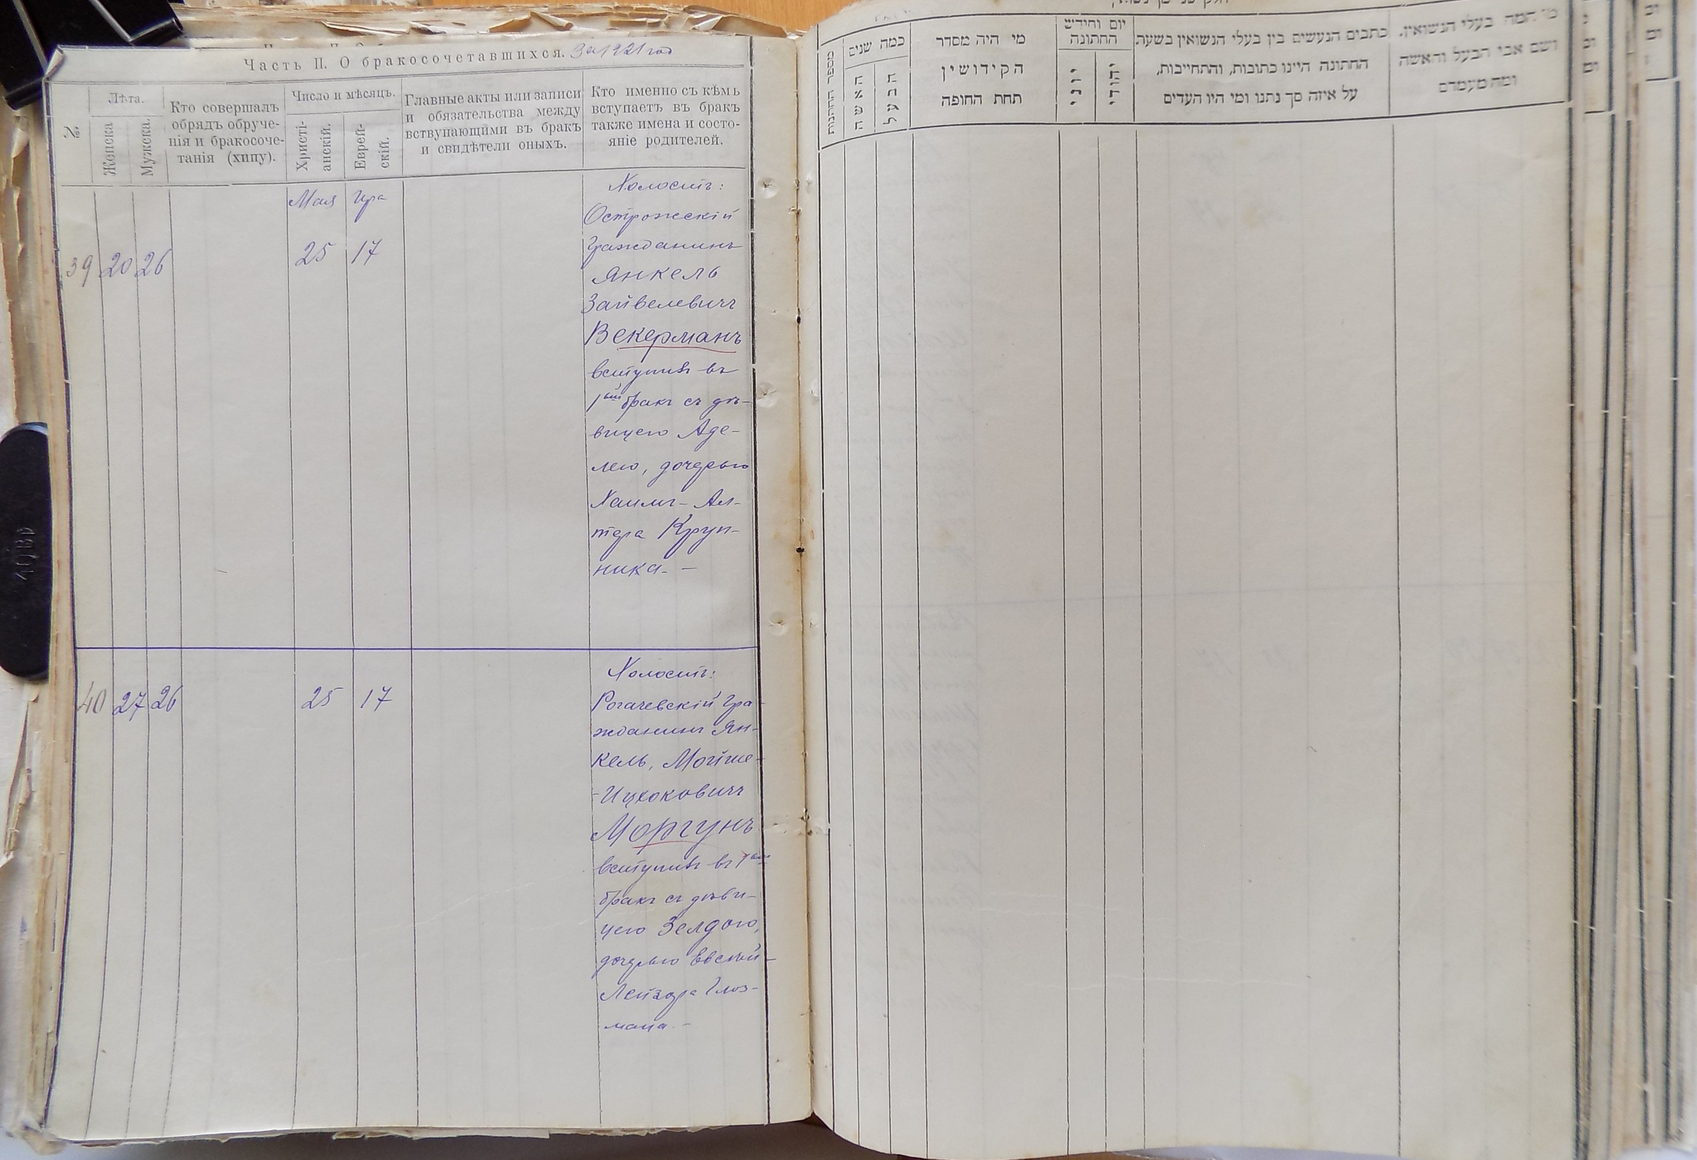 Часть II. О бракосочетавшихся. За 1921 год
№.
Лѣта.
Женска
Мужска.
Кто совершалъ
обрядъ обруче-
нія и бракосоче-
танія (хипу).
Число и мѣсяцъ.
Христі-
анскій.
Еврей-
скій.
Главные акты или записи
и обязательства между
вствупающими въ бракъ
и свидѣтели оныхъ.
Кто именно съ кѣмъ
вступаетъ въ бракъ
также имена и состо-
яніе родителей.
Мая
39 20 26 25 17
Холостъ:
Острожскій
Гражданинъ
Янкель
Зайвелевичъ
Векерманъ
вступилъ въ
1ый бракъ съ дѣ-
вицею Аде-
лею, дочерью
Хаимъ-Ал-
тера Круп-
ника. —
40 27 26 25 17
Холостъ:
Рогачевскій Гра-
жданинъ Ян-
кель, Мойше-
-Ицхоковичъ
Моргунъ
вступилъ въ
бракъ съ дѣви-
цею Зелдою,
дочерью
Лейзера Глоз-
мана. —
מספר החתונות
כמה שנים
האשה
הבעל
מי היה מסדר
הקידושין
תחת החופה
יום וחודש
החתונה
יוני
יהודי
כתבים הנעשים בין בעלי הנשואין בשעת
החתונה היינו כתובות, והתחייבות,
על איזה סך נתנו ומי היו העדים
בעלי הנשואין,
ושם אבי הבעל והאשה
ומה מעמדם